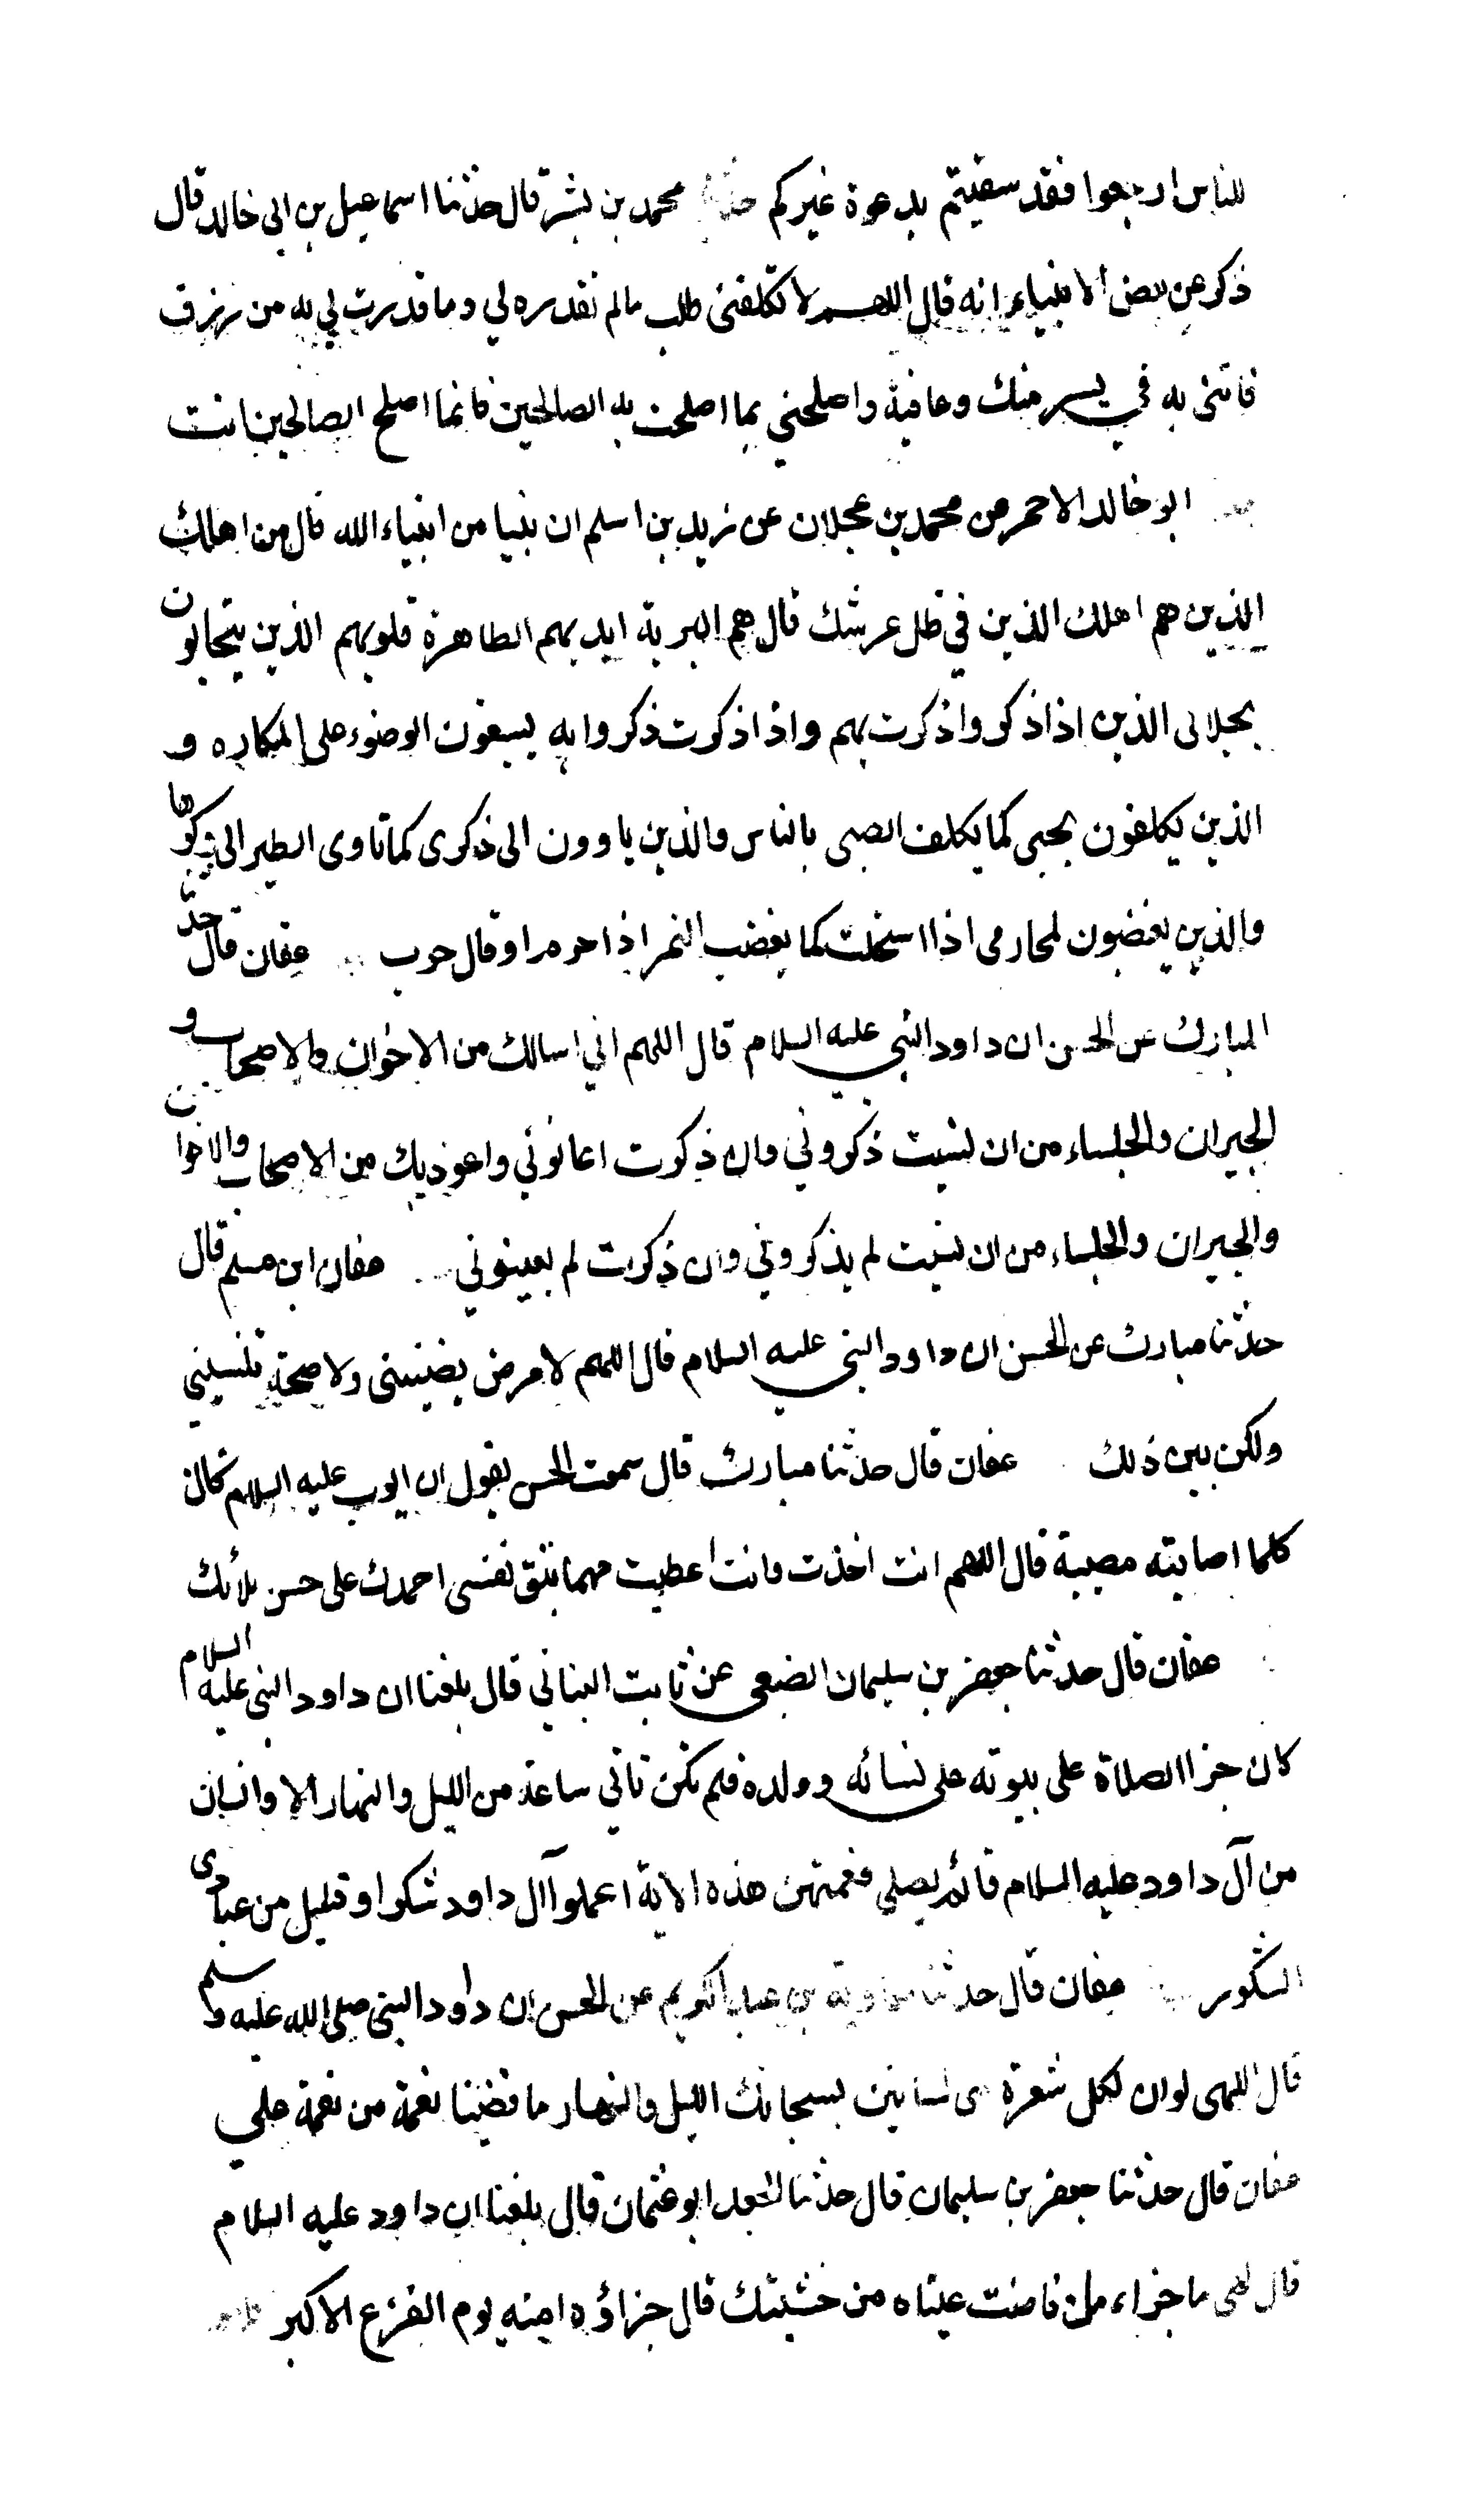 للناس ارجعوا فقد سقيتم بدعوة غيركم حدثنا محمد بن بشر قال حدثنا اسماعيل بن ابى خالد قال
ذكر عن بعض الانبياء انه قال اللهم لا تكلفنى طلب مالم تقدره لي وما قدرت لي به من رزق
فاتنى به في يسر منك وعافية واصلحني بما اصلحت به الصالحين فانما اصلح الصالحين انت
ابو خالد الاحمر عن محمد بن عجلان عن زيد بن اسلم ان نبيا من انبياء الله قال من اهلك
الذين هم اهلك الذين في ظل عرشك قال هم البرية ايديهم الطاهرة قلوبهم الذين يتحابون
بجلالى الذين اذا ذكروا ذكرت بهم واذا ذكرت ذكروا به يسبغون الوضوء على المكاره و
الذين يكلفون بحبى كما يكلف الصبى بالناس والذين ياوون الى ذكرى كما تاوى الطير الى وكورها
والذين يغضبون لمحارمى اذا استحلت كما يغضب النمر اذا حرم او قال حرب عفان قال حدثنا
المبارك عن الحسن ان داود النبي عليه السلام قال اللهم اني اسالك من الاخوان والاصحاب و
الجيران والجلساء من ان نسيت ذكروني وان ذكرت اعانوني واعوذ بك من الاصحاب والاخوان
والجيران والجلساء من ان نسيت لم يذكروني وان ذكرت لم يعينوني عفان ابن مسلم قال
حدثنا مبارك عن الحسن ان داود النبي عليه السلام قال اللهم لا مرض يضنينى ولا صحة تنسيني
ولكن بين ذلك عفان قال حدثنا مبارك قال سمعت الحسن يقول ان ايوب عليه السلام كان
كلما اصابته مصيبة قال اللهم انت اخذت وانت اعطيت مهما تبق نفسى احمدك على حسن بلائك
عفان قال حدثنا جعفر بن سليمان الضبعى عن ثابت البناني قال بلغنا ان داود النبى عليه السلام
كان جزا الصلاة على بيوته على نسائه وولده فلم تكن تاتي ساعة من الليل والنهار الا وانسان
من آل داود عليه السلام قائم يصلي فعمتهن هذه الاية اعملوا آل داود شكرا وقليل من عبادى
الشكور عفان قال حدثنا معاوية بن عبد الكريم عن الحسن ان داود النبى صلى الله عليه وسلم
قال اللهى لو ان لكل شعرة منى لسانين يسبحانك الليل والنهار ما قضينا نعمة من نعمة علي
عفان قال حدثنا جعفر بن سليمان قال حدثنا الجعد ابو عثمان قال بلغنا ان داود عليه السلام
قال الهى ما جزاء من فاضت عيناه من خشيتك قال جزاؤه امنه يوم الفزع الاكبر